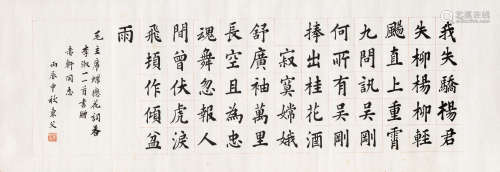 我失驕楊君
失柳楊柳輕
颺直上重霄
九問訊吳剛
何所有吳剛
捧出桂花酒
寂寞嫦娥
舒廣袖萬里
長空且為忠
魂舞忽報人
間曾伏虎淚
飛頓作傾盆
雨
毛主席蝶戀花詞答
李淑一一首書贈
軒同志
丙辰中秋東父